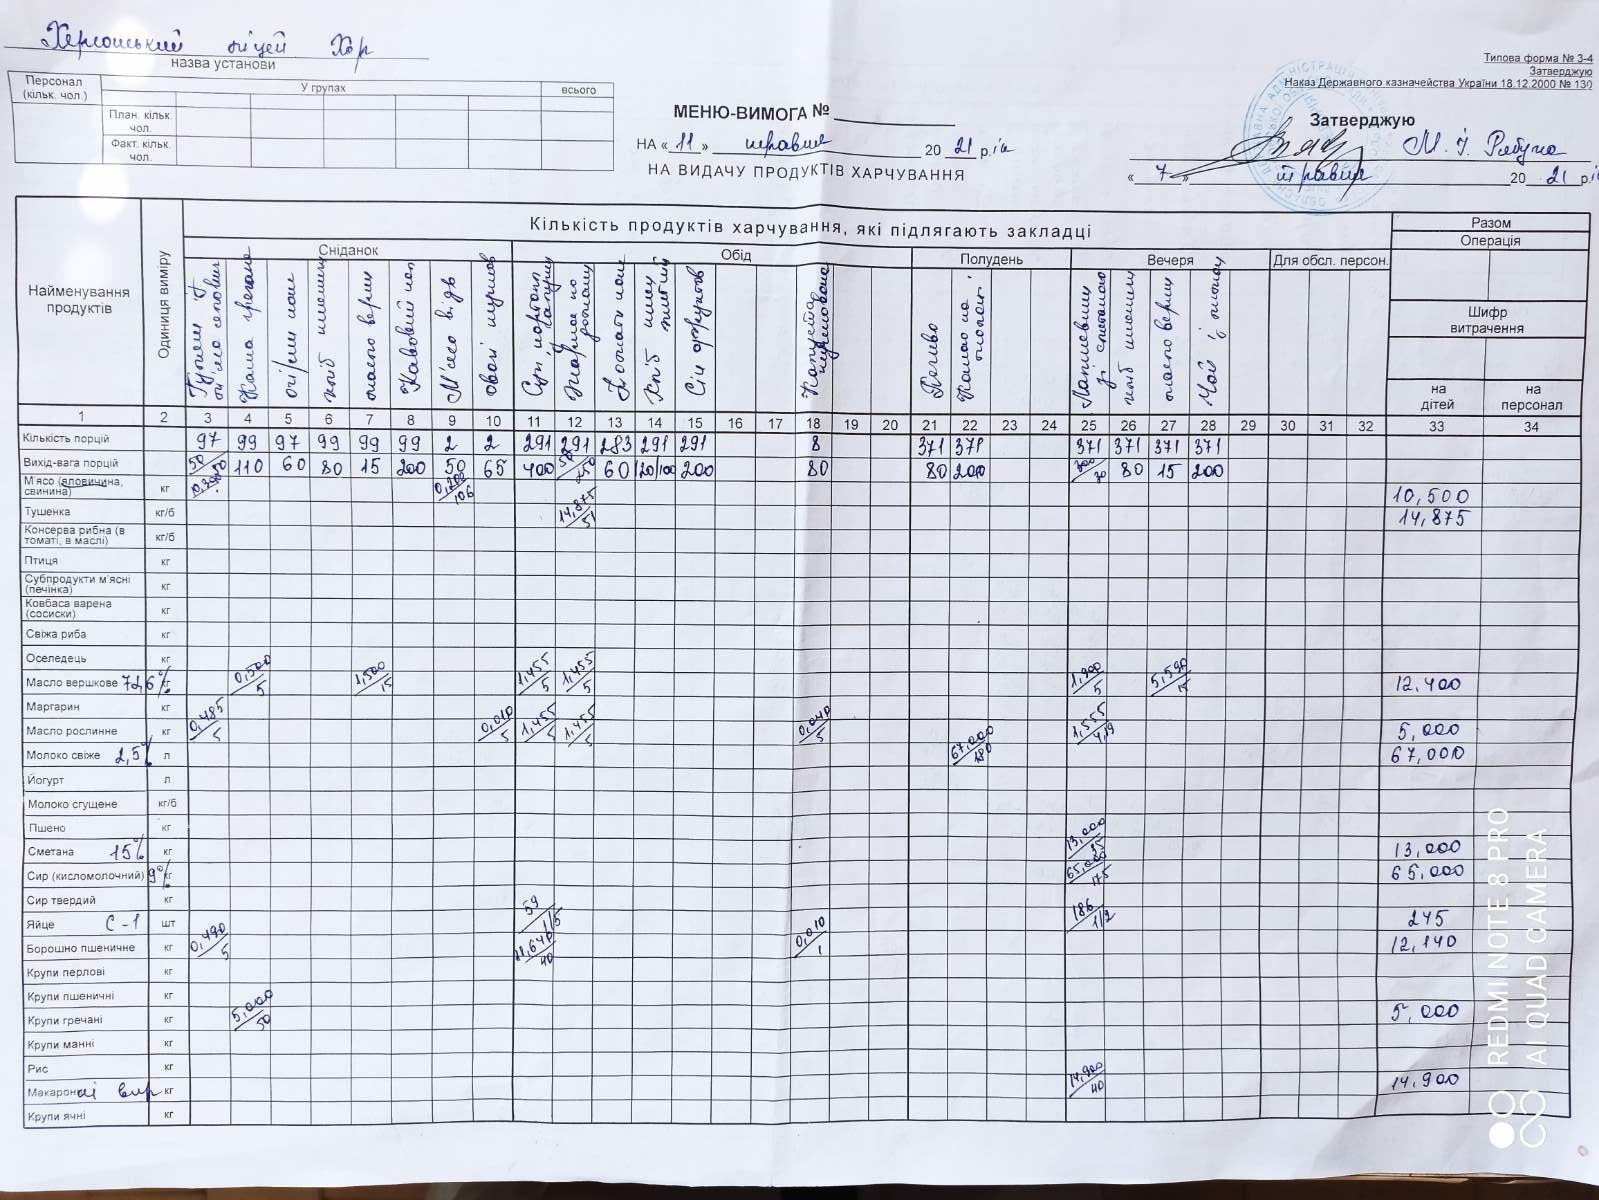 Херсонський ліцей ХОР
назва установи
Типова форма № 3-4
Затверджую
Наказ Державного казначейства України 18.12.2000 № 130
Персонал (кільк. чол.)
У групах
всього
План. кільк. чол.
Факт. кільк. чол.
МЕНЮ-ВИМОГА №
НА « 11 » травня 20 21 р.
НА ВИДАЧУ ПРОДУКТІВ ХАРЧУВАННЯ
Затверджую
М. І. Рябуха
« 7 » травня 20 21 р.
Найменування продуктів
Одиниця виміру
Кількість продуктів харчування, які підлягають закладці
Разом
Операція
Сніданок
Обід
Полудень
Вечеря
Для обсл. персон.
Шифр витрачення
на дітей
на персонал
Каша гречана
хліб пшеничн
масло верш
М'ясо відв
Жаркое по домашн
Сік фруктов
Капуста тушкована
Печиво
Какао на молоці
хліб пшеничн
масло верш
1 2 3 4 5 6 7 8 9 10 11 12 13 14 15 16 17 18 19 20 21 22 23 24 25 26 27 28 29 30 31 32 33 34
Кількість порцій 97 99 97 99 99 99 2 2 291 291 283 291 291 8 371 371 371 371 371 371
Вихід-вага порцій 50/50 110 60 80 15 200 50 65 400 50/250 60 120/100 200 80 80 200 200/30 80 15 200
М'ясо (яловичина, свинина) кг 0,200/106 10,500
Тушенка кг/б 14,875/51 14,875
Консерва рибна (в томаті, в маслі) кг/б
Птиця кг
Субпродукти м'ясні (печінка) кг
Ковбаса варена (сосиски) кг
Свіжа риба кг
Оселедець кг
Масло вершкове 72,6% кг 0,500/5 1,500/15 1,455/5 1,455/5 1,900/5 5,590/15 12,400
Маргарин кг
Масло рослинне кг 0,485/5 0,010/5 1,455/5 1,455/5 0,040/5 1,555/4,19 5,000
Молоко свіже 2,5% л 67,000/180 67,000
Йогурт л
Молоко сгущене кг/б
Пшено кг
Сметана 15% кг 13,000/35 13,000
Сир (кисломолочний) 9% кг 65,000/175 65,000
Сир твердий кг
Яйце С-1 шт 59/1/5 186/1/2 245
Борошно пшеничне кг 0,490/5 11,640/40 0,010/1 12,140
Крупи перлові кг
Крупи пшеничні кг
Крупи гречані кг 5,000/50 5,000
Крупи манні кг
Рис кг
Макаронні вир кг 14,900/40 14,900
Крупи ячні кг
REDMI NOTE 8 PRO
AI QUAD CAMERA